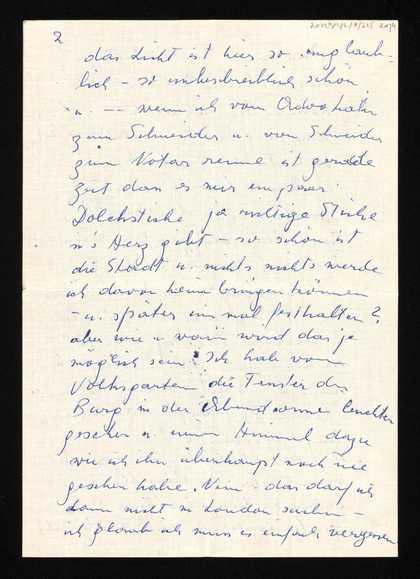 2
das Licht ist hier so unglaub-
lich - so unbeschreiblich schön
u. -- wenn ich vom Advokaten
zum Schneider u. vom Schneider
zum Notar renne ist gerade
Zeit dass es mir ein paar
Dolchstiche ja richtige Stiche
in's Herz gibt - so schön ist
die Stadt u. nichts nichts werde
ich davon heim bringen können
- u. später einmal festhalten?
aber wie u. wann wird das je
möglich sein? Ich hab vom
Volksgarten die Fenster der
Burg in der Abendsonne leuchten
gesehen u. einen Himmel dazu
wie ich ihn überhaupt noch nie
gesehen habe. Nein - das darf ich
dann nicht in London suchen -
ich glaub ich muss es einfach vergessen